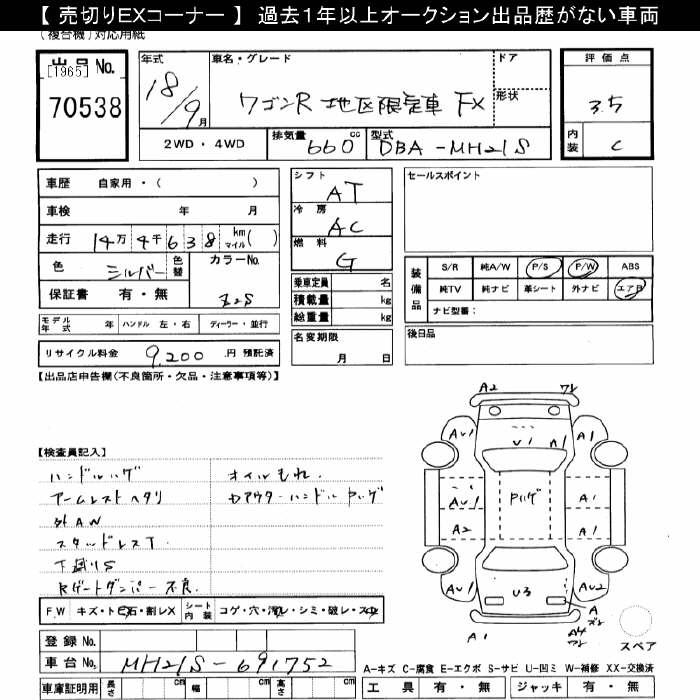 【 売切りEXコーナー 】 過去1年以上オークション出品歴がない車両
(複合機)対応用紙
出品No.
[1965]
70538
年式
18/9月
車名・グレード
ワゴンR 地区限定車 FX
ドア
形状
評価点
3.5
内装 C
2WD・4WD
排気量 660 cc
型式 DBA-MH21S
車歴 自家用・( )
車検 年 月
走行 14万 4千 6 3 8 km マイル ( )
色 シルバー 色替
カラーNo. Z2S
保証書 有・無
シフト AT
冷房 AC
燃料 G
乗車定員 名
積載量 kg
総重量 kg
名変期限 月 日
セールスポイント
装備品
S/R 純A/W P/S P/W ABS
純TV 純ナビ 革シート 外ナビ エアB
ナビ型番:
後日品
モデル年式 年 ハンドル 左・右 ディーラー・並行
リサイクル料金 9,200 円 預託済
【出品店申告欄(不良箇所・欠品・注意事項等)】
【検査員記入】
ハンドルハゲ オイルもれ.
アームレストヘタリ
外AW
スタッドレスT
下廻りS
Rゲートダンパー不良
A2
AU1 U1 A1 AU1
AU1 Pハゲ A1
A2 A1
AU1 U3 AU2
A1
A
スペア
F.W キズ・ト石・割レX シート内装 コゲ・穴・汚レ・シミ・破レ・スレ
登録No.
車台No. MH21S-691752
車庫証明用 長さ cm 幅 cm 高さ cm
A-キズ C-腐食 E-エクボ S-サビ U-凹ミ W-補修 XX-交換済
工具 有・無 ジャッキ 有・無